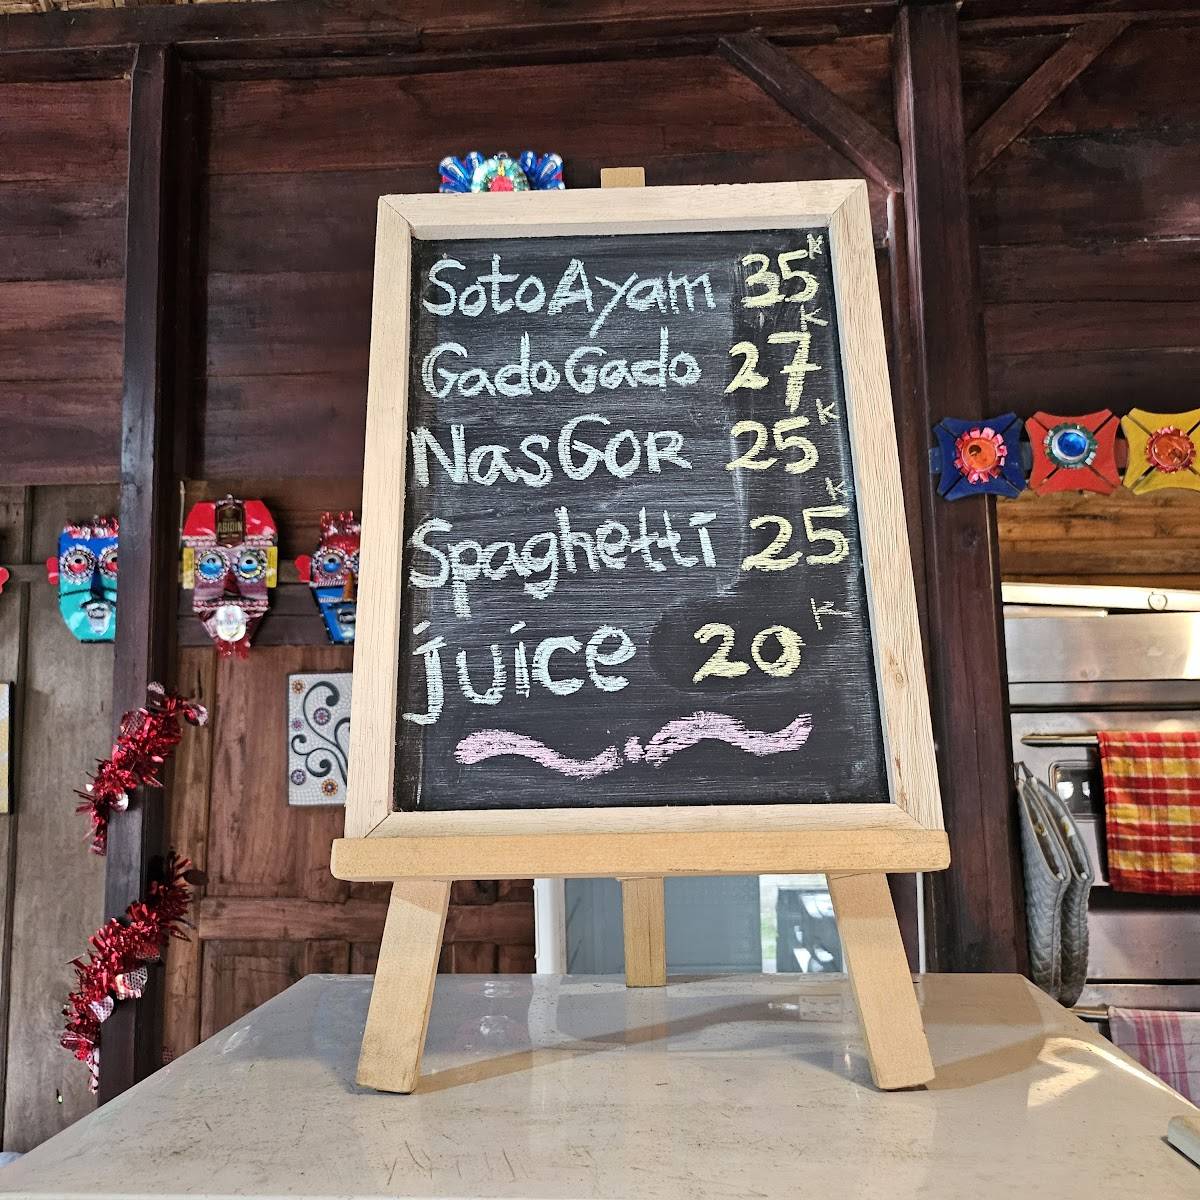 Soto Ayam 35K
Gado Gado 27K
Nas GOR 25K
Spaghetti 25K
juice 20K